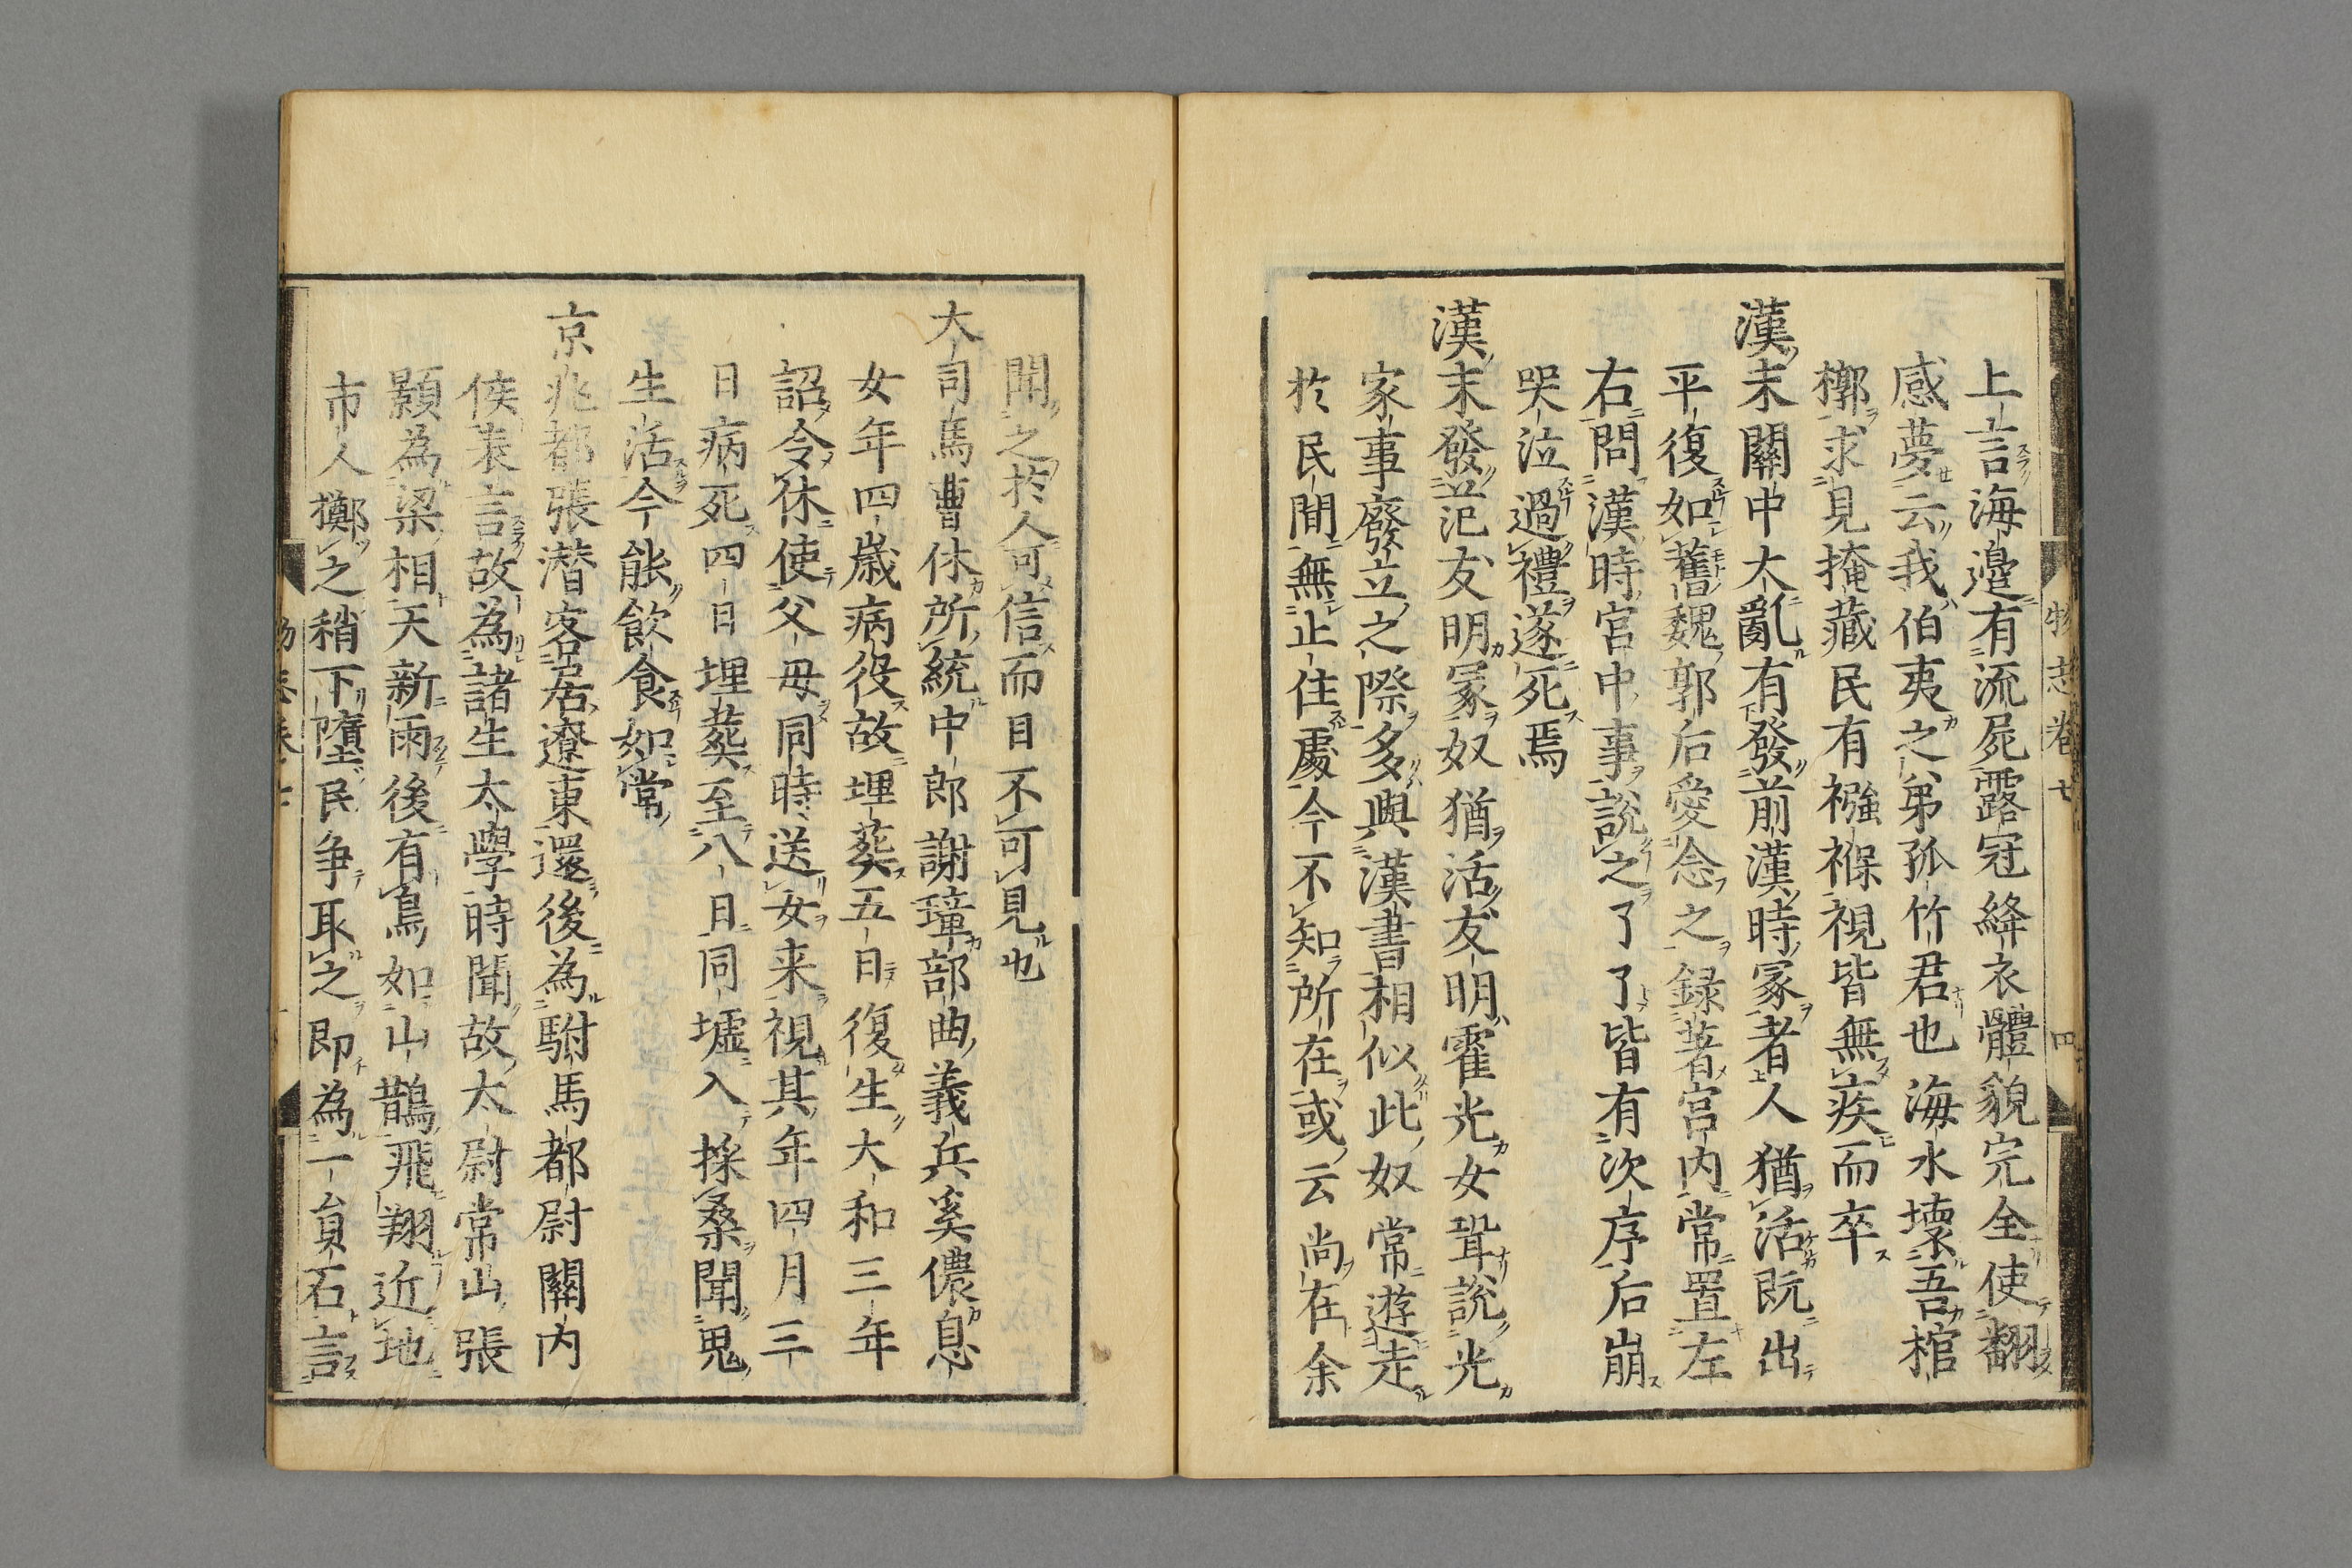 上言海邊有流屍露冠絳衣體貌完全使翻
感夢云我伯夷之弟孤竹君也海水壞吾棺
槨求見掩藏民有襁褓視皆無疾而卒
漢末關中大亂有發前漢時冢者人猶活既出
平復如舊魏郭后愛念之録著宮内常置左
右問漢時宮中事說之了了皆有次序后崩
哭泣過禮遂死焉
漢末發范友明冢奴猶活友明霍光女聟說光
家事廢立之際多與漢書相似此奴常遊走
於民間無止住處今不知所在或云尚在余
聞之於人可信而目不可見也
大司馬曹休所統中郎謝璋部曲義兵奚儂息
女年四歳病役故埋葬五日復生大和三年
詔令休使父母同時送女来視其年四月三
日病死四日埋葬至八日同墟入採桑聞鬼
生活今能飲食如常
京兆都張潜客居遼東還後為駙馬都尉關内
侯表言故為諸生太學時聞故太尉常山張
顥為梁相天新雨後有鳥如山鵲飛翔近地
市人擲之稍下墮民争取之即為一員石言
物志卷七 四